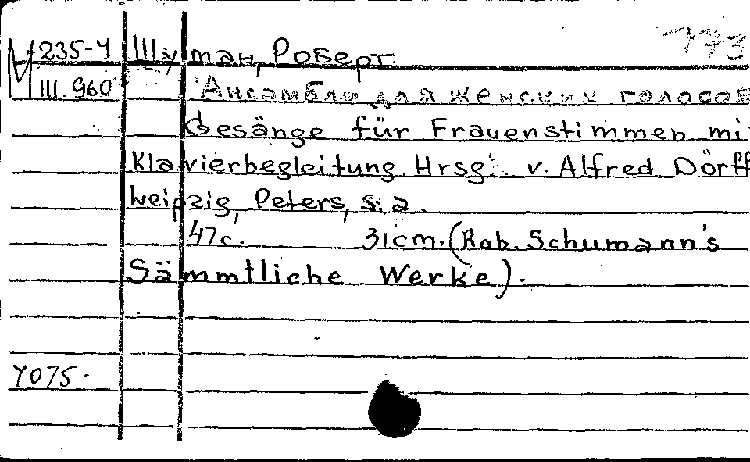 773
М 235-4 Шуман, Роберт.
Ш. 960 Ансамбли для женских голосов
Gesänge für Frauenstimmen mi
Klavierbegleitung. Hrsg. v. Alfred Dörff
Leipzig, Peters, s. a.
47c. 31cm. (Rob. Schumann's
Sämmtliche Werke).
4075.